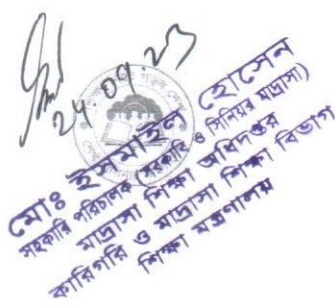 24.09.23
মোঃ ইসমাইল হোসেন
সহকারি পরিচালক সরকারি ও সিনিয়র মাদ্রাসা)
মাদ্রাসা শিক্ষা অধিদপ্তর
কারিগরি ও মাদ্রাসা শিক্ষা বিভাগ
শিক্ষা মন্ত্রণালয়